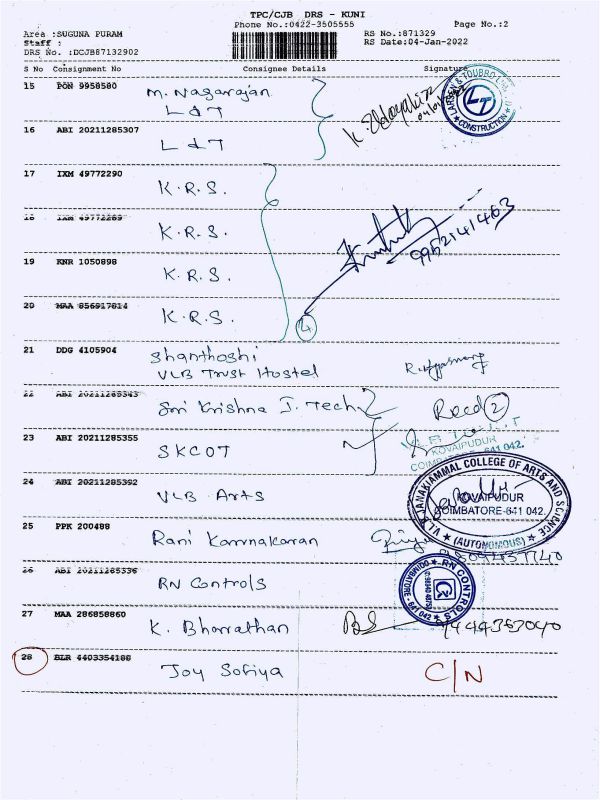 TPC/CJB DRS - KUNI
Phone No.:0422-3505555
Page No.:2
Area :SUGUNA PURAM
RS No.:871329
Staff :
RS Date:04-Jan-2022
DRS No. :DCJB87132902
S No Consignment No Consignee Details Signature
15 PON 9958580 M. Nagarajan
L & T
LARSEN & TOUBRO LTD
LT
CONSTRUCTION
16 ABI 20211285307
L & T
17 IXM 49772290
K.R.S.
18 IXM 49772289
K.R.S.
9952141463
19 KNR 1050898
K.R.S.
20 MAA 856917814
K.R.S.
4
21 DDG 4105904
Shanthoshi
VLB Trust Hostel
22 ABI 20211285343
Sri Krishna I. Tech
Recd 2
23 ABI 20211285355
SKCOT
KOVAIPUDUR
COIMBATORE-641 042.
24 ABI 20211285392
VLB Arts
V.L.B. JANAKIAMMAL COLLEGE OF ARTS AND SCIENCE
KOVAIPUDUR
COIMBATORE-641 042.
(AUTONOMOUS)
25 PPK 200488
Rani Karunakaran
26 ABI 20211285336
RN Controls
RN CONTROLS
COIMBATORE - 641 042
27 MAA 286858860
K. Bharathan
BS 9444353040
28 BLR 4403354188
Joy Sofiya
C/N